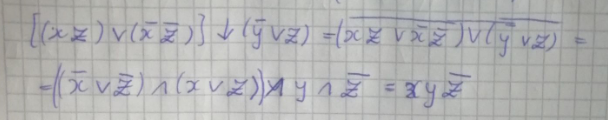 [(xz) ∨ (x̄ z̄)] ↓ (ȳ ∨ z) = (x̅z̅ ̅∨̅ ̅x̄̅z̄̅)̅ ̅∨̅ ̅(̅ȳ̅ ̅∨̅ ̅z̅)̅ =
= ((x̄ ∨ z̄) ∧ (x ∨ z)) ∧ y ∧ z̄ = xyz̄